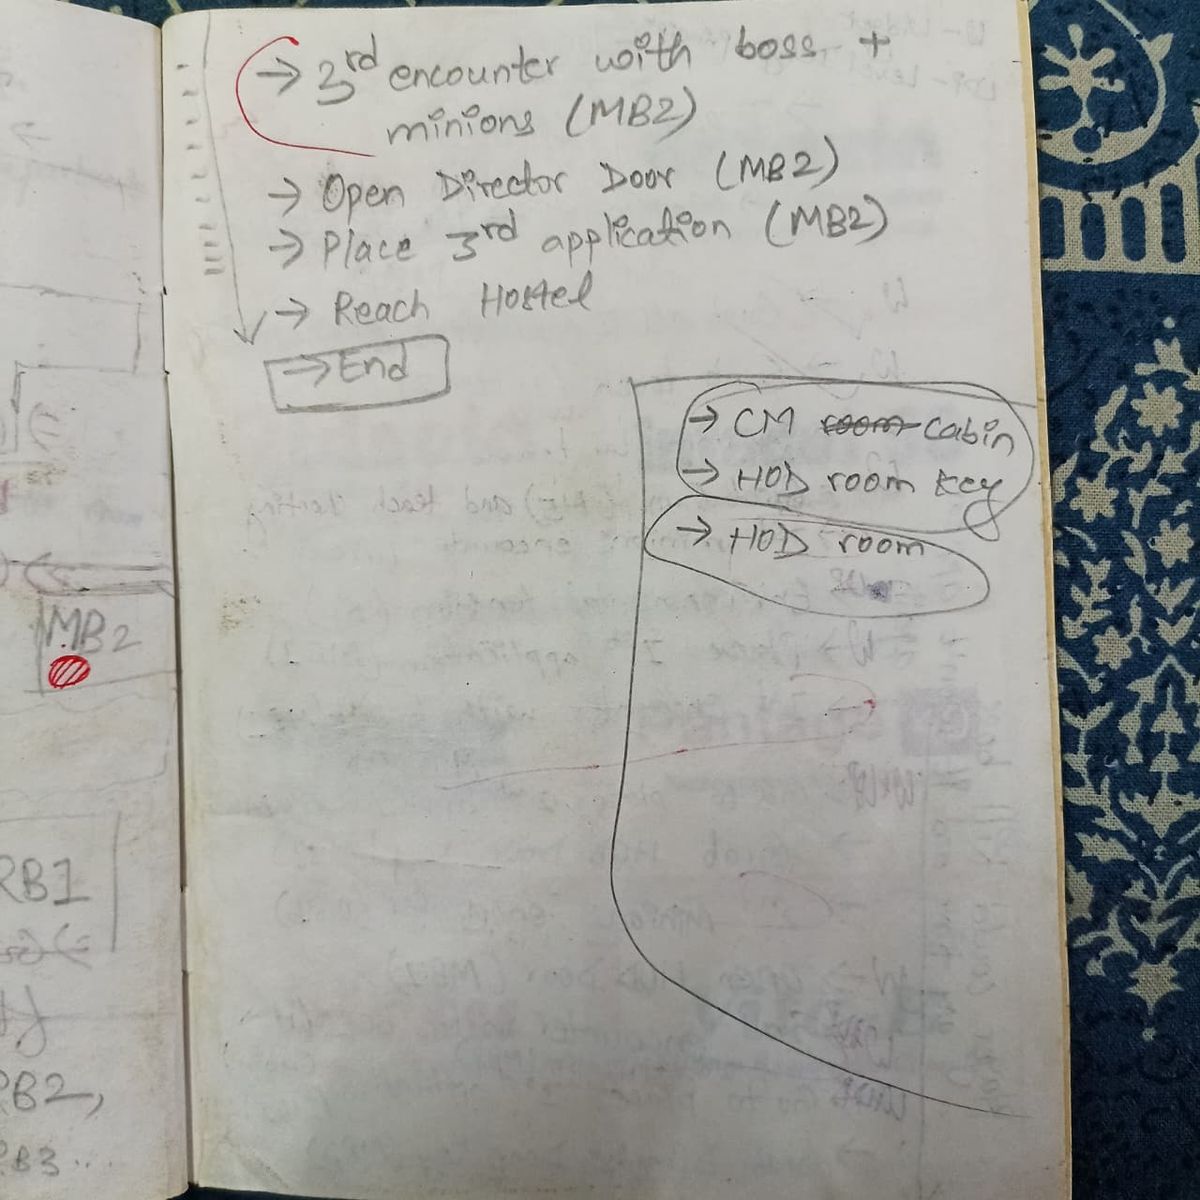 → 3rd encounter with boss +
minions (MB2)
→ Open Director Door (MB2)
→ Place 3rd application (MB2)
→ Reach Hostel
→ End
→ CM room cabin
→ HOD room key
→ HOD room
MB2
RB1
RB2,
RB3...